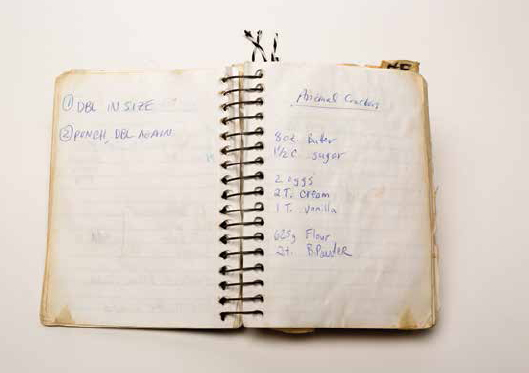 ① DBL IN SIZE
② PUNCH, DBL AGAIN
Animal Crackers
8oz Butter
1½ C sugar
2 eggs
2 T. Cream
1 T. Vanilla
625g Flour
2t. B.Powder